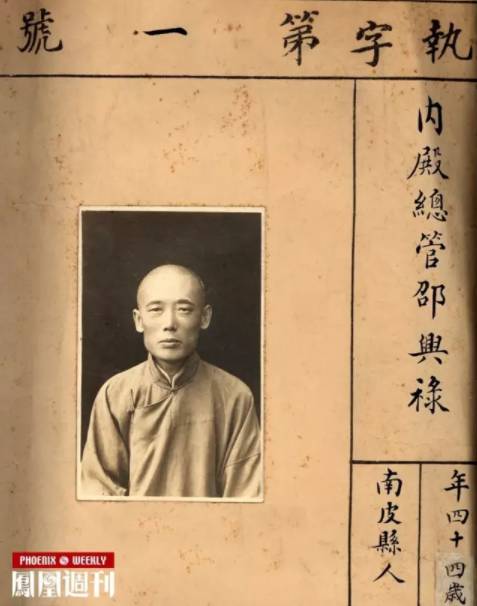 執字第一號
內殿總管邵興祿
年四十四歲
南皮縣人
PHOENIX WEEKLY
鳳凰週刊